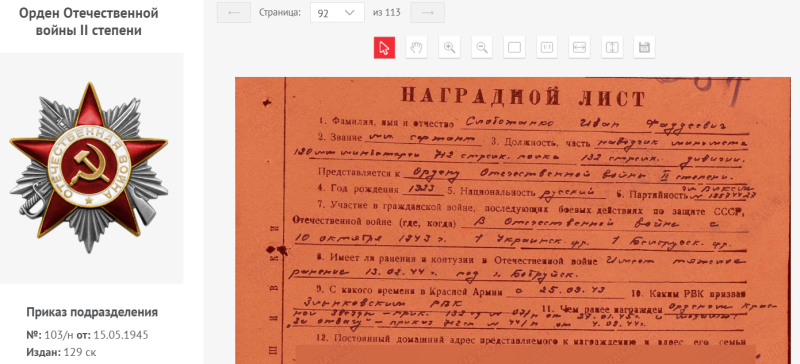 Орден Отечественной
войны II степени
ОТЕЧЕСТВЕННАЯ ВОЙНА
Приказ подразделения
№: 103/н от: 15.05.1945
Издан: 129 ск
Страница: 92 из 113
1:1
НАГРАДНОЙ ЛИСТ
1. Фамилия, имя и отчество Слободянко Иван Фаддеевич
2. Звание мл. сержант 3. Должность, часть наводчик миномета
120 мм минбатареи 712 стрелк. полка 132 стрелк. дивизии.
Представляется к Ордену Отечественной войны II степени.
4. Год рождения 1923 5. Национальность русский 6. Партийность
7. Участие в гражданской войне, последующих боевых действиях по защите СССР,
Отечественной войне (где, когда) В Отечественной войне с
10 октября 1943 г. 1 Украинск. фр. 1 Белорусск. фр.
8. Имеет ли ранения и контузии в Отечественной войне Имеет тяжелое
ранение 13.02.44 г. под г. Бобруйск.
9. С какого времени в Красной Армии с 25.09.43 10. Каким РВК призван
Злынковским РВК 11. Чем ранее награжден Орденом Крас-
ной Звезды - прик. 132 от 29.01.45 г. и медалью
"За отвагу" - приказ № 44/н от 4.08.44 г.
12. Постоянный домашний адрес представляемого к награждению и адрес его семьи